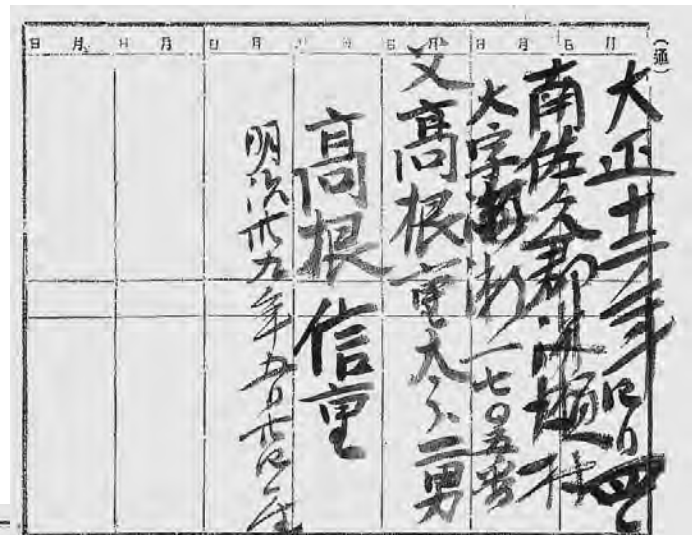 (通)
日 月 日 月 日 月 日 月 日 月 日 月 日 月
大正十二年 月四
南佐久郡 村
大字 一七〇五番
父高根重太 二男
高根信重
明治卅九年五月 日生